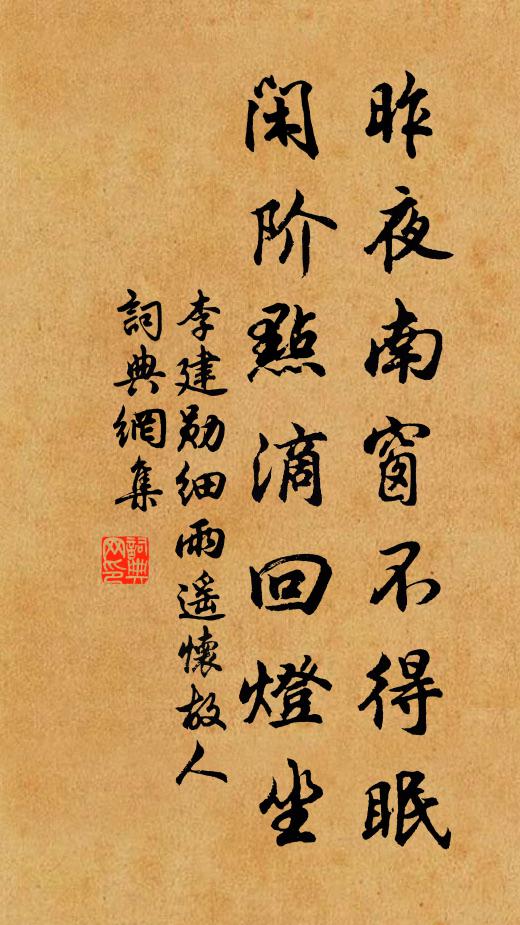 昨夜南窗不得眠
闲阶點滴回燈坐
李建勋细雨遥懷故人
詞典網集
詞典網印